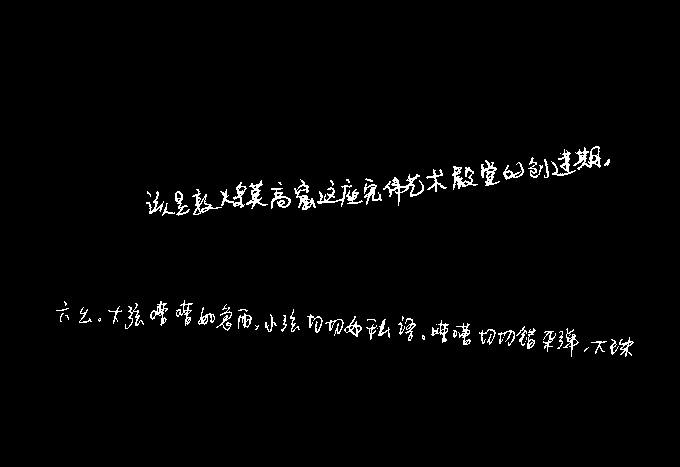 这是敦煌莫高窟这座宏伟艺术殿堂的创建期。
六幺。大弦嘈嘈如急雨，小弦切切如私语。嘈嘈切切错杂弹，大珠